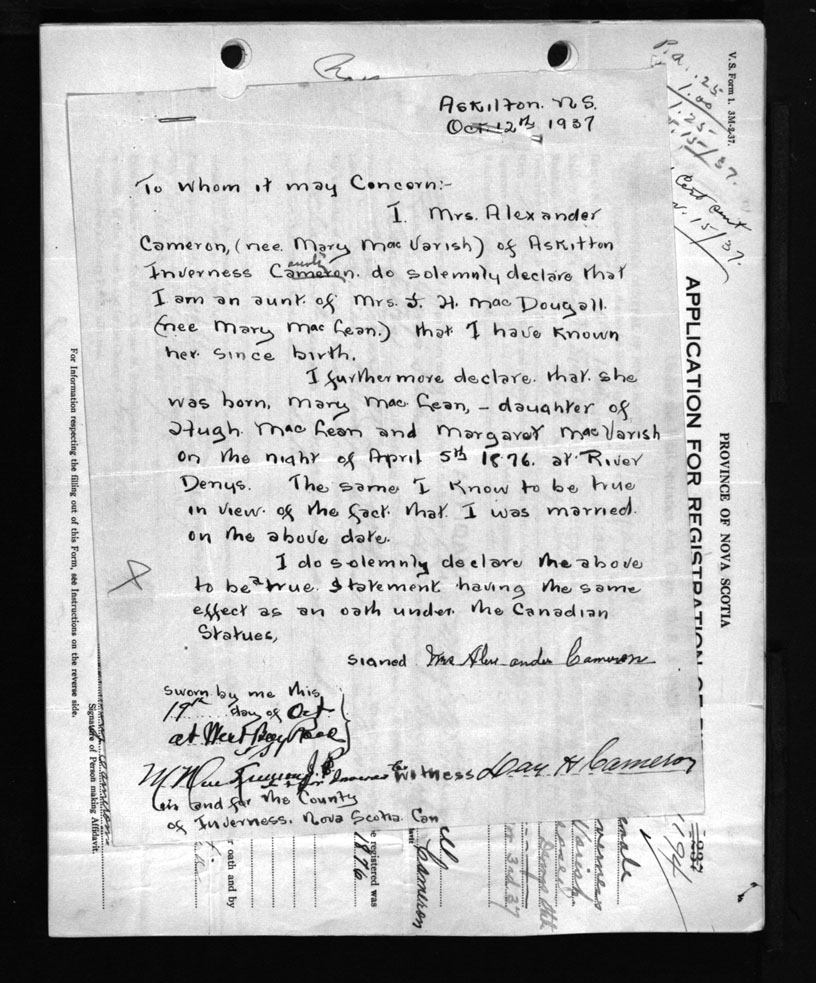 Askilton. N S.
Oct 12th 1937
To whom it may Concern:-
I. Mrs. Alexander
Cameron, (nee. Mary MacVarish) of Askitton
Inverness Cameron. do solemnly declare that
I am an aunt. of Mrs. J. H. MacDougall.
(nee Mary MacLean.) that I have known
her. since birth.
I furthermore declare. that. she
was born, Mary MacLean, – daughter of
Hugh MacLean and Margaret MacVarish
on the night of April 5th 1876. at River
Denys. The same I know to be true
in view. of the fact. that I was married.
on the above date.
I do solemnly declare the above
to be a true. Statement having the same
effect as an oath under. the Canadian
Statues,
signed. Mrs Alexander Cameron
sworn by me this
19th day of Oct.
at West Bay Road
witness Dan H Cameron
in and for the County
of Inverness. Nova Scotia. Can
V. S. Form 1. 3M-2-37.
P.a. .25
1.00
1.25
15/37.
Cert sent
15/37.
PROVINCE OF NOVA SCOTIA
APPLICATION FOR REGISTRATION OF
For Information respecting the filling out of this Form, see Instructions on the reverse side.
Signature of Person making Affidavit.
r oath and by
e registered was
1876
Cameron
3rd 37
Varish
verness
male
1194